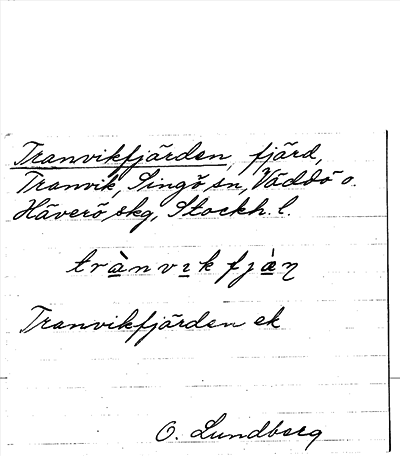 Tranvikfjärden, fjärd,
Tranvik, Singö sn, Väddö o.
Häverö skg, Stockh. l.
trànvikfjàṇ
Tranvikfjärden ek
O. Lundberg